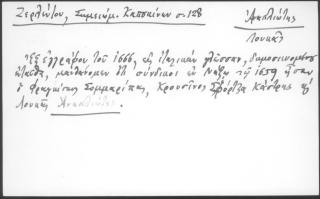 Ζερλέντου, Σημειώμ. Καππαίνων σ. 128
Ἀναλιώτης
Λουκᾶς
Ἐξ ἐγγράφου τοῦ 1666, εἰς ἰταλικὴν γλῶσσαν, δημοσιευομένου
ἐνταῦθα, μανθάνομεν ὅτι σύνδικοι ἐν Νάξῳ τῷ 1659 ἦσαν
ὁ Φραγκῖσκος Σομμαρίπας, Κρουσῖνος Σφόρτζα Κάστρης καὶ
Λουκᾶς Ἀναλιώτης.